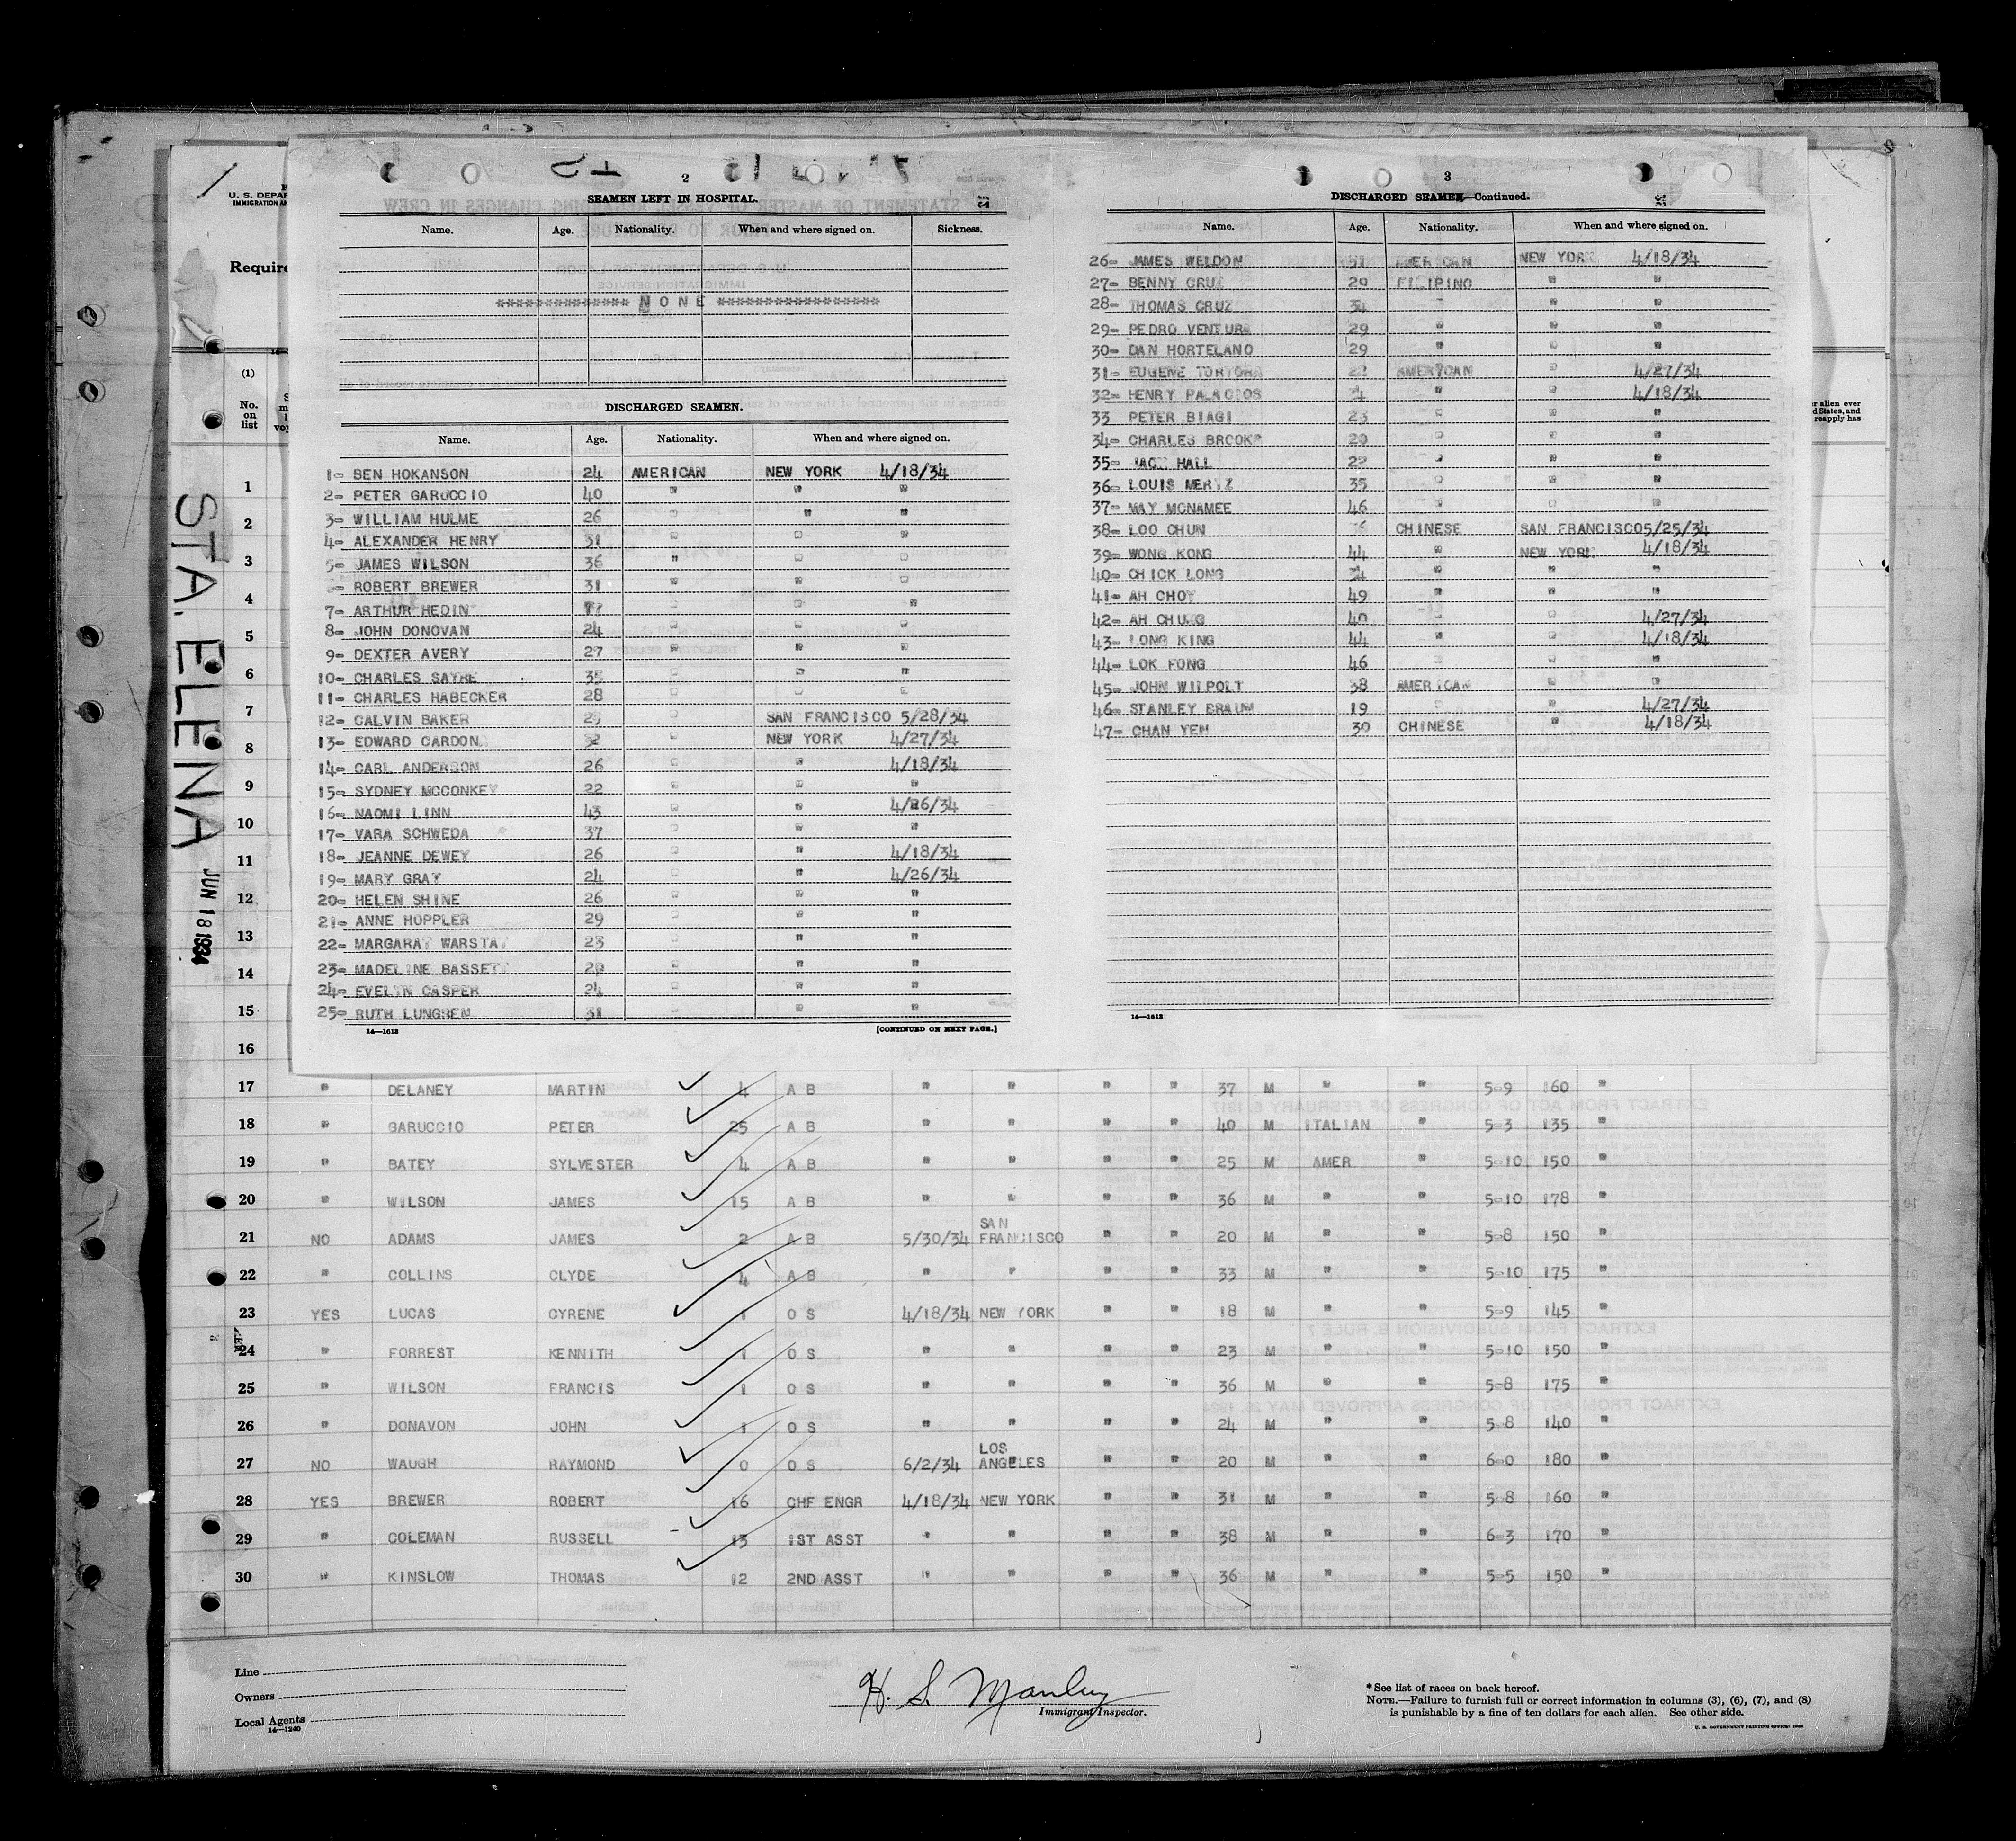 U. S. DEPAR
IMMIGRATION AN
Require
(1)
No.
on
list
STA. ELENA
JUN 18 1934
2
SEAMEN LEFT IN HOSPITAL.
Name. Age. Nationality. When and where signed on. Sickness.
************** N O N E *****************
DISCHARGED SEAMEN.
Name. Age. Nationality. When and where signed on.
1- BEN HOKANSON 24 AMERICAN NEW YORK 4/18/34
2- PETER GARUCCIO 40 " " "
3- WILLIAM HULME 26 " " "
4- ALEXANDER HENRY 31 " " "
5- JAMES WILSON 36 " " "
ROBERT BREWER 31 " " "
7- ARTHUR HEDIN " " "
8- JOHN DONOVAN 24 " " "
9- DEXTER AVERY 27 " " "
10- CHARLES SAYRE 35 " " "
11- CHARLES HABECKER 28 " " "
12- CALVIN BAKER 29 " SAN FRANCISCO 5/28/34
13- EDWARD CARDON 32 " NEW YORK 4/27/34
14- CARL ANDERSON 26 " " 4/18/34
15- SYDNEY MCCONKEY 22 " " "
16- NAOMI LINN 43 " " 4/26/34
17- VARA SCHWEDA 37 " " "
18- JEANNE DEWEY 26 " " 4/18/34
19- MARY GRAY 24 " " 4/26/34
20- HELEN SHINE 26 " " "
21- ANNE HOPPLER 29 " " "
22- MARGARAT WARSTAT 23 " " "
23- MADELINE BASSETT " " "
24- EVELYN CASPER 24 " " "
25- RUTH LUNGREN 31 " " "
14—1613 [CONTINUED ON NEXT PAGE.]
3
DISCHARGED SEAMEN—Continued.
Name. Age. Nationality. When and where signed on.
26- JAMES WELDON 31 AMERICAN NEW YORK 4/18/34
27- BENNY CRUZ 29 FILIPINO " "
28- THOMAS CRUZ 34 " " "
29- PEDRO VENTURA 29 " " "
30- DAN HORTELANO 29 " " "
31- EUGENE TORTORA AMERICAN " 4/27/34
32- HENRY PALACIOS " " 4/18/34
33 PETER BIAGI 23 " " "
34- CHARLES BROOKS 20 " " "
35- JACK HALL 22 " " "
36- LOUIS MERTZ 35 " " "
37- MAY MCNAMEE 46 " " "
38- LOO CHUN CHINESE SAN FRANCISCO 5/25/34
39- WONG KONG 44 " NEW YORK 4/18/34
40- CHICK LONG 34 " " "
41- AH CHOY 49 " " "
42- AH CHUNG 40 " " 4/27/34
43- LONG KING 44 " " 4/18/34
44- LOK FONG 46 " " "
45- JOHN WILPOLT 38 AMERICAN " "
46- STANLEY BRAUM 19 " " 4/27/34
47- CHAN YEN 30 CHINESE " 4/18/34
14—1613
r alien ever
d States, and
reapply has
1
2
3
4
5
6
7
8
9
10
11
12
13
14
15
16
17 " DELANEY MARTIN 4 A B " " " " 37 M " " 5-9 160 "
18 " GARUCCIO PETER 25 A B " " " " 40 M ITALIAN " 5-3 135 "
19 " BATEY SYLVESTER 4 A B " " " " 25 M AMER " 5-10 150 "
20 " WILSON JAMES 15 A B " " " " 36 M " " 5-10 178 "
21 NO ADAMS JAMES 2 A B 5/30/34 SAN FRANCISCO " " 20 M " " 5-8 150 "
22 " COLLINS CLYDE 4 A B " " " " 33 M " " 5-10 175 "
23 YES LUCAS CYRENE 1 O S 4/18/34 NEW YORK " " 18 M " " 5-9 145 "
24 " FORREST KENNITH 1 O S " " " " 23 M " " 5-10 150 "
25 " WILSON FRANCIS 1 O S " " " " 36 M " " 5-8 175 "
26 " DONAVON JOHN 1 O S " " " " 24 M " " 5-8 140 "
27 NO WAUGH RAYMOND 0 O S 6/2/34 LOS ANGELES " " 20 M " " 6-0 180 "
28 YES BREWER ROBERT 16 CHF ENGR 4/18/34 NEW YORK " " 31 M " " 5-8 160 "
29 " COLEMAN RUSSELL 13 1ST ASST " " " " 38 M " " 6-3 170 "
30 " KINSLOW THOMAS 12 2ND ASST " " " " 36 M " " 5-5 150 "
Line
Owners
Local Agents
14—1240
H. S. Manley
Immigrant Inspector.
* See list of races on back hereof.
NOTE.—Failure to furnish full or correct information in columns (3), (6), (7), and (8)
is punishable by a fine of ten dollars for each alien. See other side.